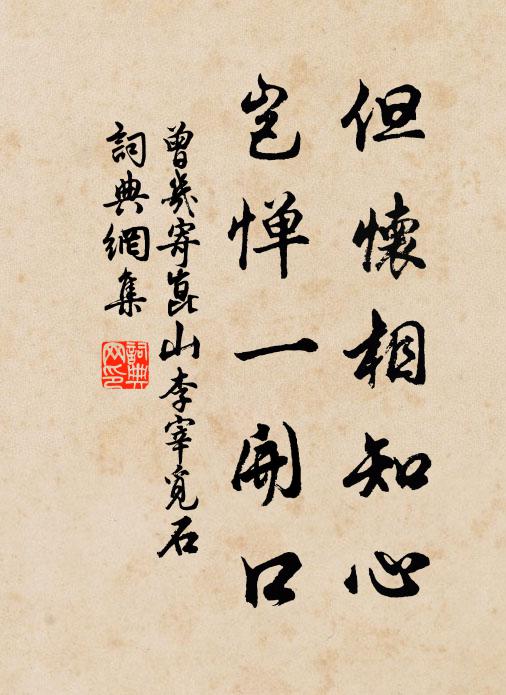 但懷相知心
豈憚一開口
曾幾寄崑山李宰覓石
詞典網集
詞典網印